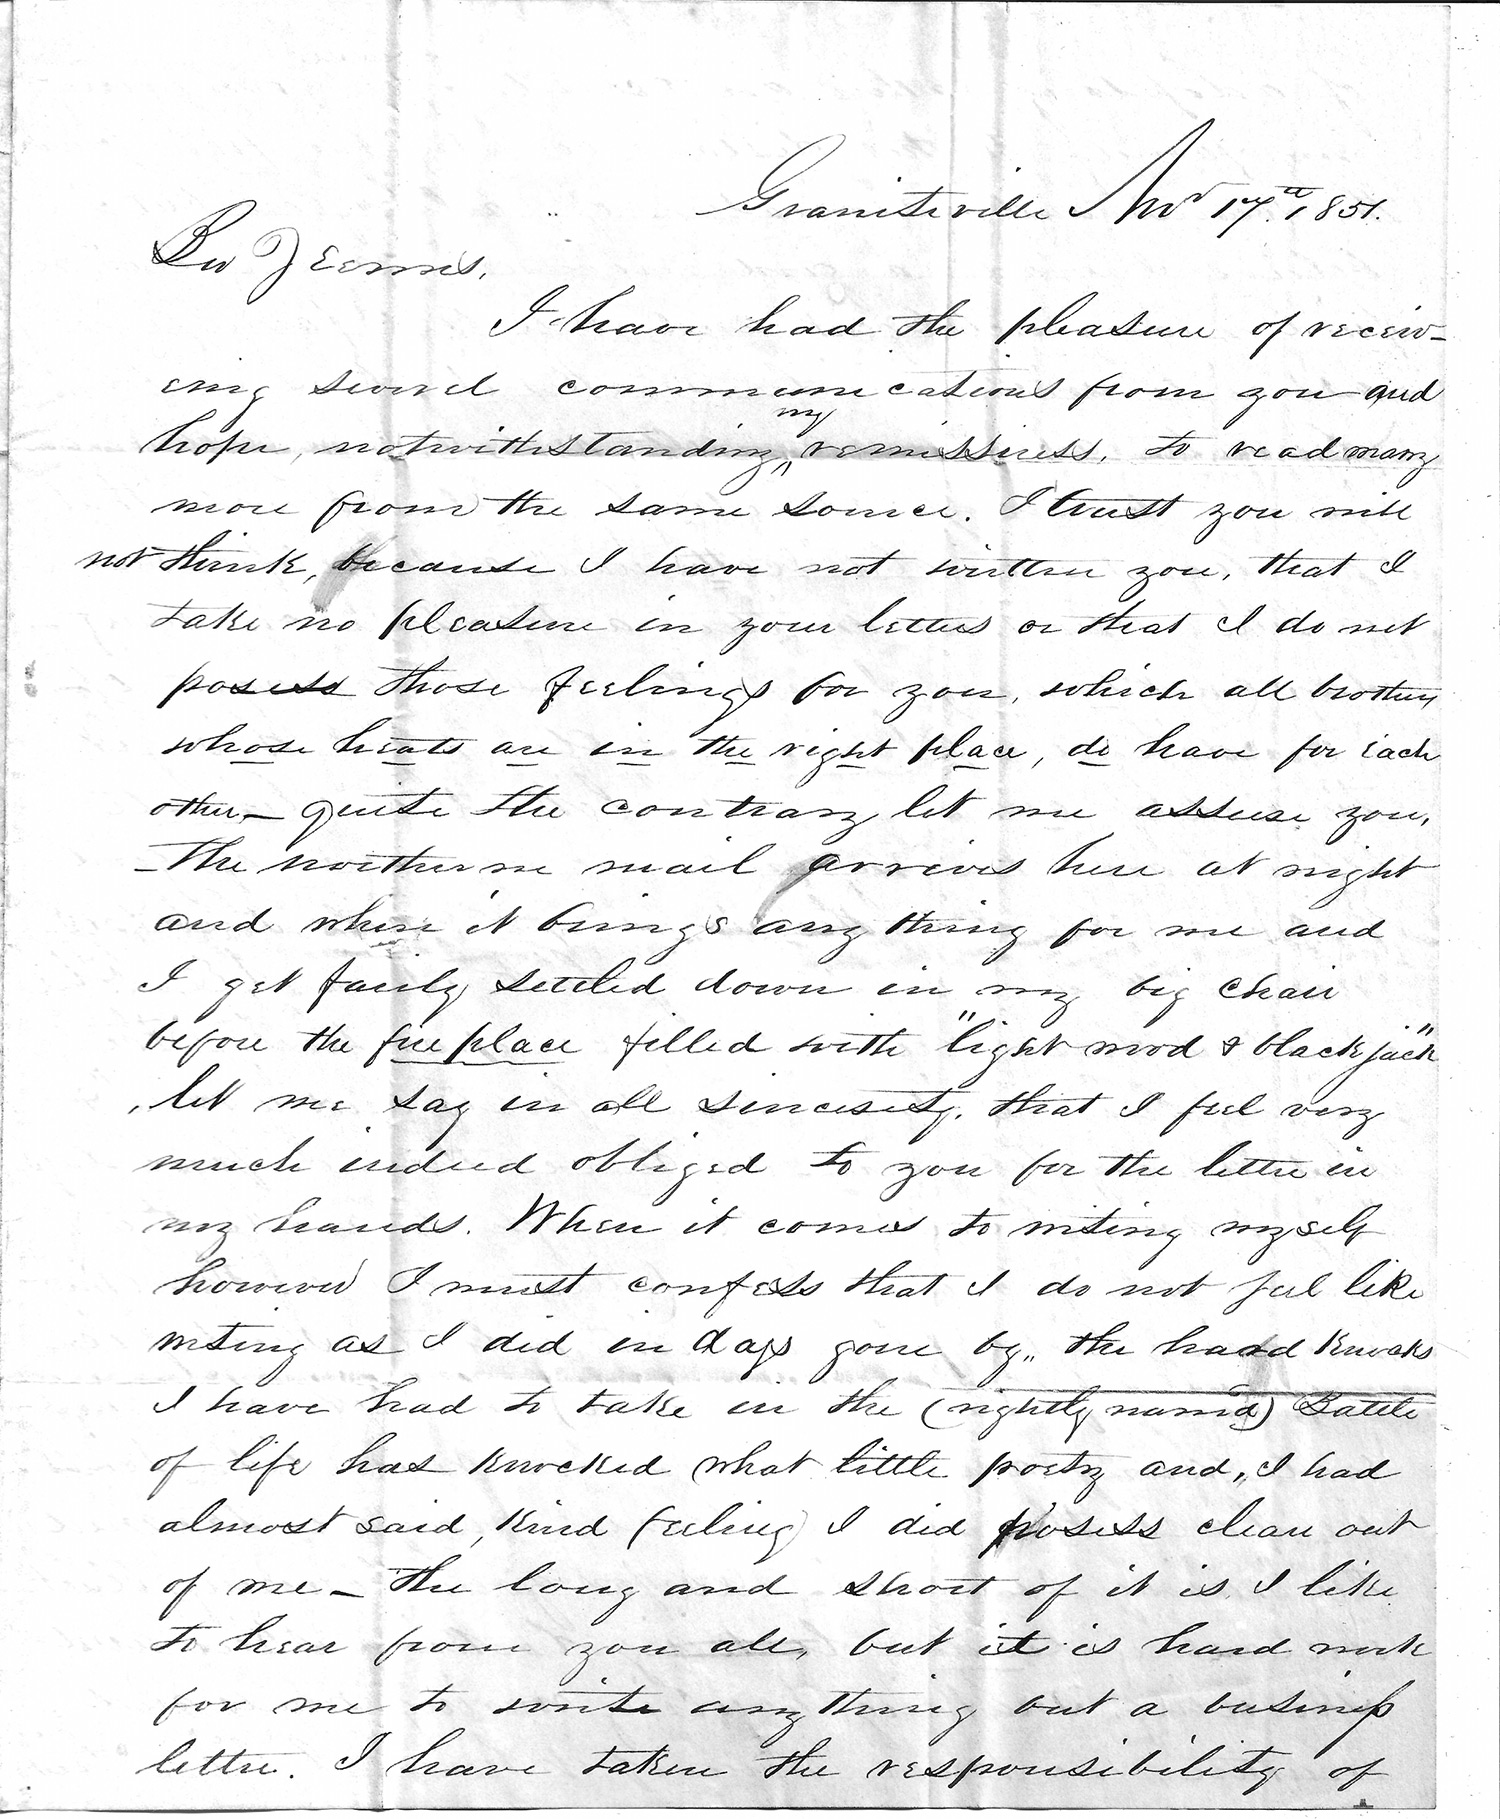 Graniteville Nov 17th 1851.
Bro
I have had the pleasure of receiv-
ing several communications from you and
hope, notwithstanding my remissness, to read many
more from the same source. I trust you will
not think, because I have not written you, that I
take no pleasure in your letters or that I do not
posess those feelings for you, which all brothers
whose hearts are in the right place, do have for each
other_ quite the contrary let me assure you,
_The northern mail arrives here at night
and when it brings any thing for me and
I get fairly settled down in my big chair
before the fire place filled with "light wood & black jack"
, let me say in all sincerity, that I feel very
much indeed obliged to you for the letter in
my hands. When it comes to writing myself
however I must confess that I do not feel like
writing as I did in days gone by,, the hard knocks
I have had to take in the (rightly named) Battle
of life has knocked what little poetry and, I had
almost said, kind feeling I did posess clean out
of me_ The long and short of it is I like
to hear from you all, but it is hard work
for me to write any thing but a business
letter. I have taken the responsibility of